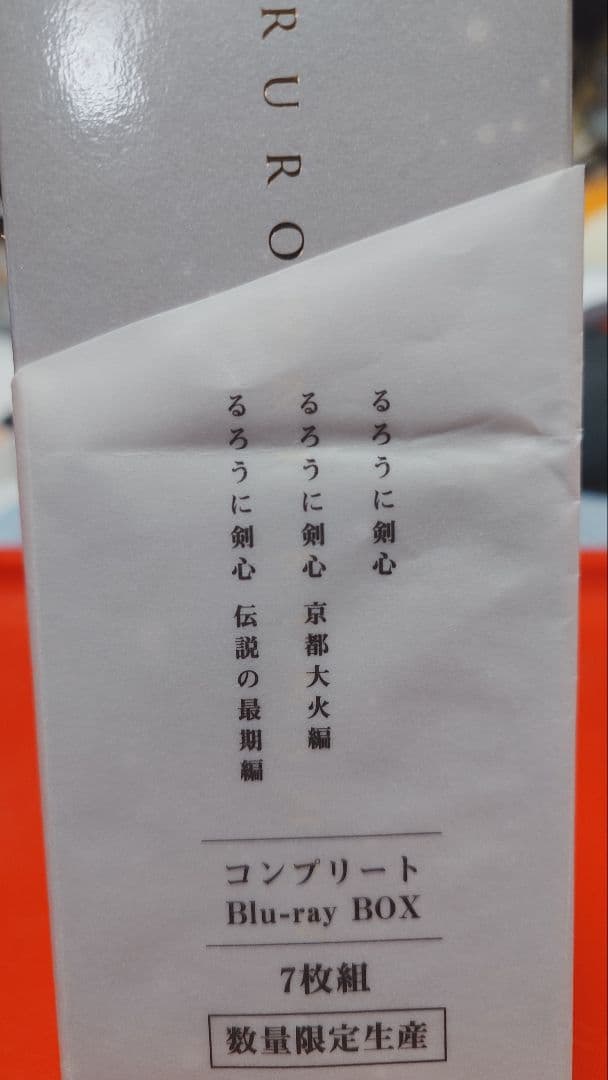 RURO
るろうに剣心
るろうに剣心 京都大火編
るろうに剣心 伝説の最期編
コンプリート
Blu-ray BOX
7枚組
数量限定生産